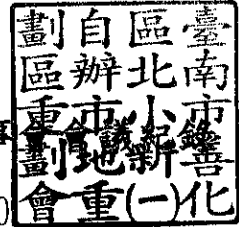 臺南市善化
區北小新(一)
自辦市地重
劃區重劃會
會議紀錄